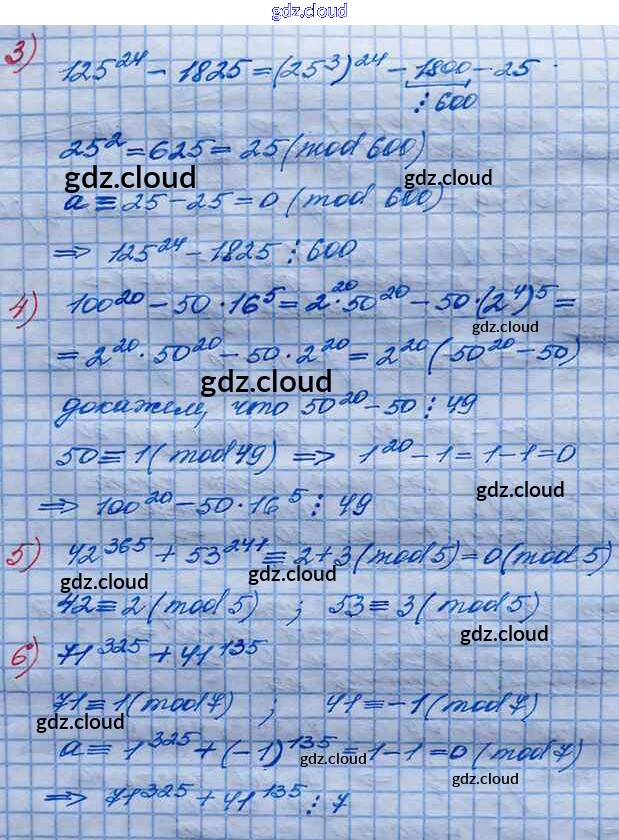 gdz.cloud
3) 125²⁴ - 1825 = (25³)²⁴ - 1800 - 25
⋮ 600
25² = 625 = 25 (mod 600)
gdz.cloud gdz.cloud
a ≡ 25 - 25 = 0 (mod 600)
⇒ 125²⁴ - 1825 ⋮ 600
4) 100²⁰ - 50 · 16⁵ = 2²⁰ · 50²⁰ - 50 · (2⁴)⁵ =
gdz.cloud
= 2²⁰ · 50²⁰ - 50 · 2²⁰ = 2²⁰ (50²⁰ - 50)
gdz.cloud
докажем, что 50²⁰ - 50 ⋮ 49
50 ≡ 1 (mod 49) ⇒ 1²⁰ - 1 = 1 - 1 = 0
⇒ 100²⁰ - 50 · 16⁵ ⋮ 49
gdz.cloud
5) 42³⁶⁵ + 53²⁴¹ ≡ 2 + 3 (mod 5) = 0 (mod 5)
gdz.cloud gdz.cloud
42 ≡ 2 (mod 5) ; 53 ≡ 3 (mod 5)
gdz.cloud
6) 71³²⁵ + 41¹³⁵
71 ≡ 1 (mod 7) ; 41 ≡ -1 (mod 7)
gdz.cloud
a ≡ 1³²⁵ + (-1)¹³⁵ ≡ 1 - 1 = 0 (mod 7)
gdz.cloud
⇒ 71³²⁵ + 41¹³⁵ ⋮ 7
gdz.cloud